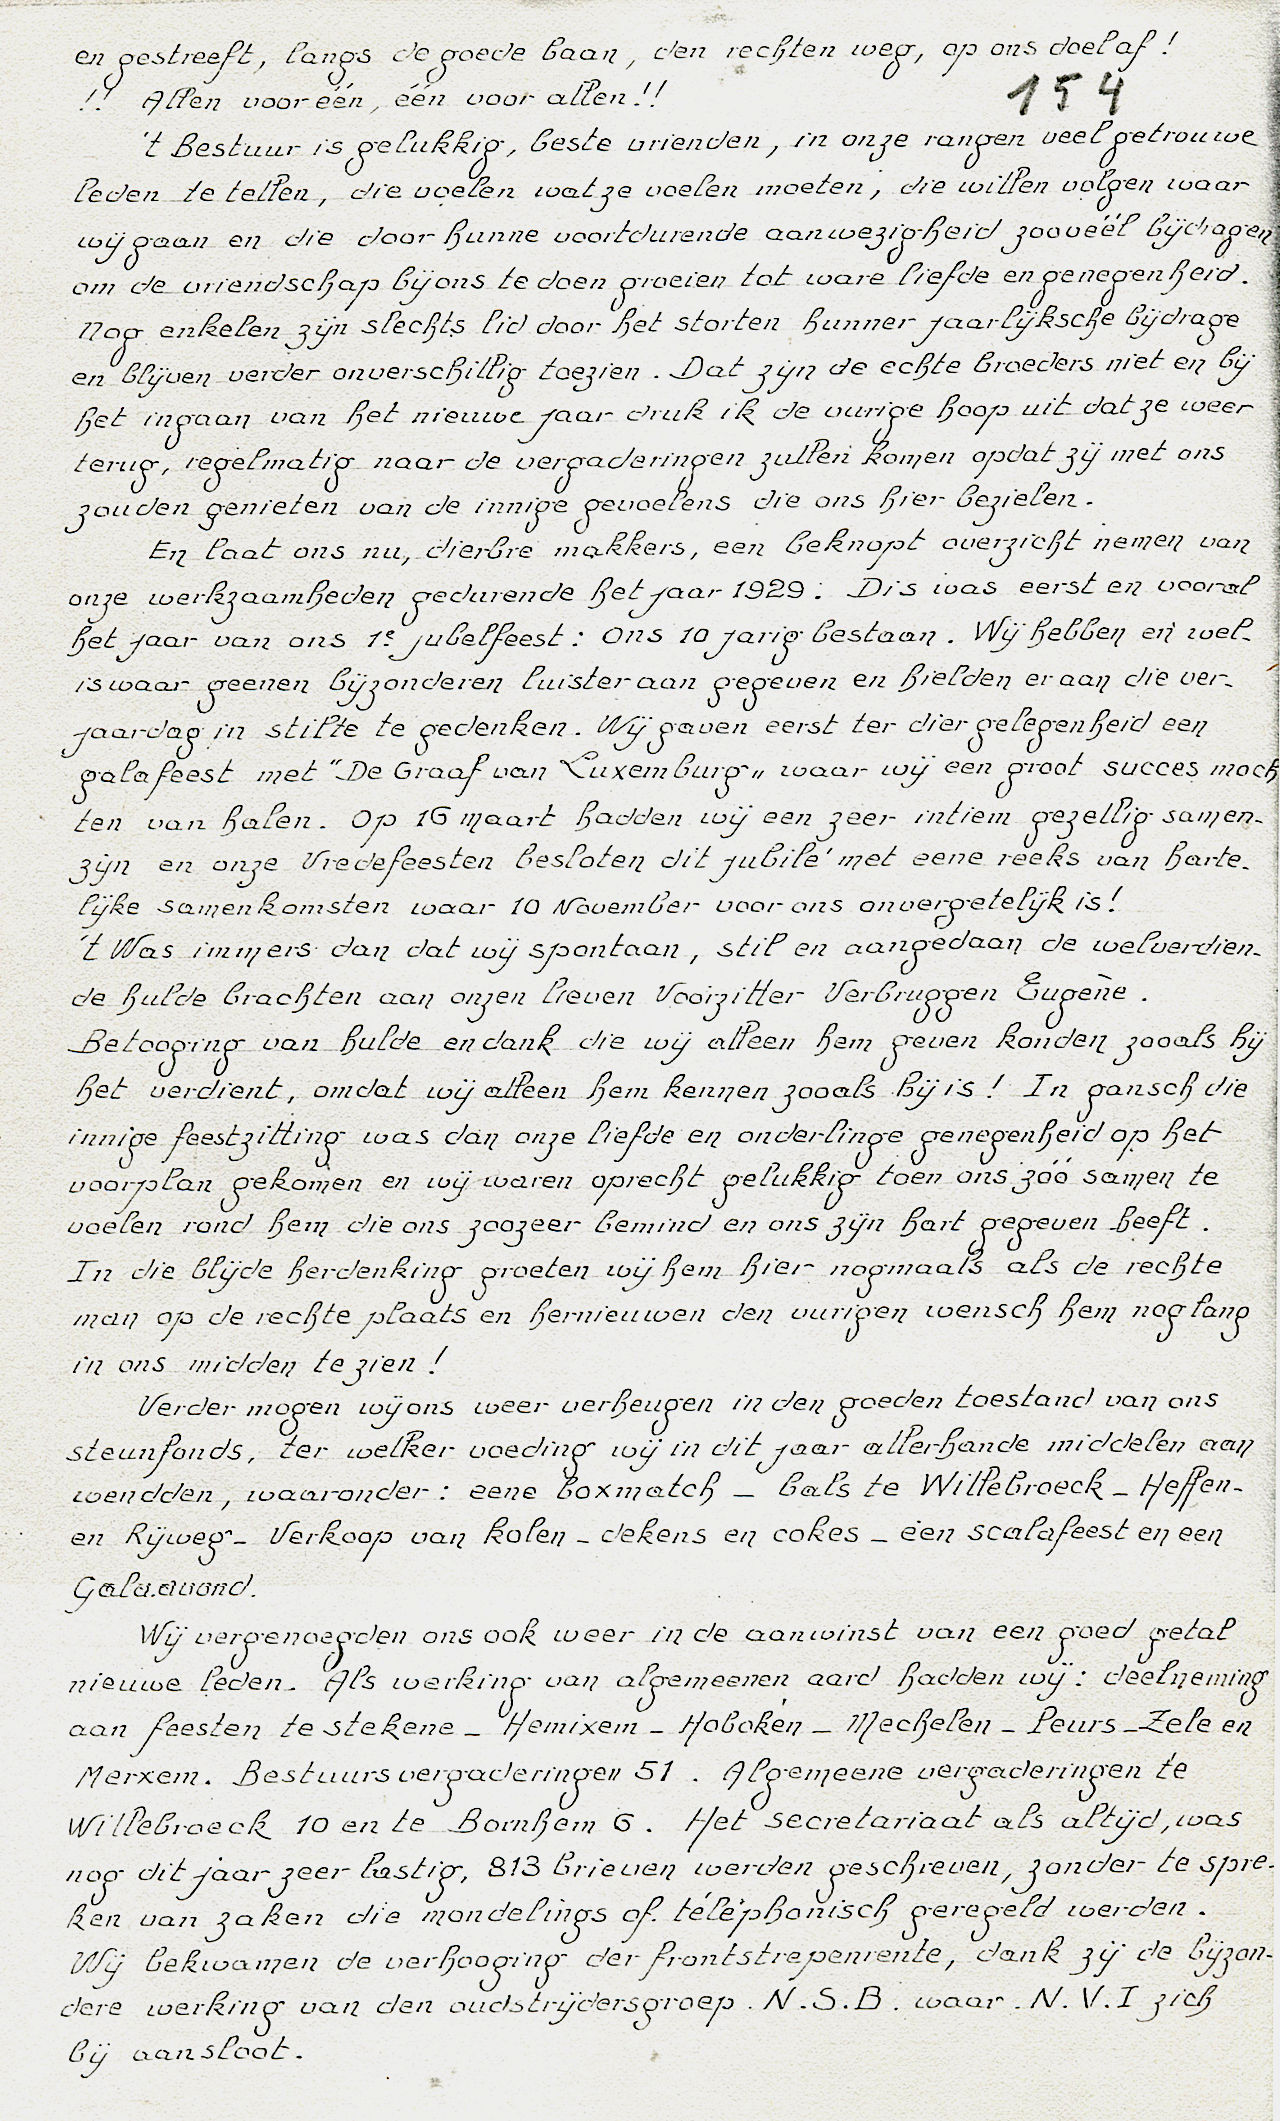 en gestreeft, langs de goede baan, den rechten weg, op ons doel af !
!! Allen voor één, één voor allen !!
154
't Bestuur is gelukkig, beste vrienden, in onze rangen veel getrouwe
leden te tellen, die voelen wat ze voelen moeten, die willen volgen waar
wij gaan en die door hunne voortdurende aanwezigheid zooveél bijdragen
om de vriendschap bij ons te doen groeien tot ware liefde en genegenheid.
Nog enkelen zijn slechts lid door het storten hunner jaarlijksche bijdrage
en blijven verder onverschillig toezien. Dat zijn de echte broeders niet en bij
het ingaan van het nieuwe jaar druk ik de vurige hoop uit dat ze weer
terug, regelmatig naar de vergaderingen zullen komen opdat zij met ons
zouden genieten van de innige gevoelens die ons hier bezielen.
En laat ons nu, dierbre makkers, een beknopt overzicht nemen van
onze werkzaamheden gedurende het jaar 1929: Dis was eerst en vooral
het jaar van ons 1e jubelfeest: Ons 10 jarig bestaan. Wij hebben er wel-
iswaar geenen bijzonderen luister aan gegeven en hielden er aan die ver-
jaardag in stilte te gedenken. Wij gaven eerst ter dier gelegenheid een
galafeest met "De Graaf van Luxemburg" waar wij een groot succes moch
ten van halen. Op 16 maart hadden wij een zeer intiem gezellig samen-
zijn en onze Vredefeesten besloten dit jubilé met eene reeks van harte-
lijke samenkomsten waar 10 November voor ons onvergetelijk is!
't Was immers dan dat wij spontaan, stil en aangedaan de welverdien-
de hulde brachten aan onzen lieven Voorzitter Verbruggen Eugène.
Betooging van hulde en dank die wij alleen hem geven konden zooals hij
het verdient, omdat wij alleen hem kennen zooals hij is! In gansch die
innige feestzitting was dan onze liefde en onderlinge genegenheid op het
voorplan gekomen en wij waren oprecht gelukkig toen ons zóó samen te
voelen rond hem die ons zoozeer bemind en ons zijn hart gegeven heeft.
In die blijde herdenking groeten wij hem hier nogmaals als de rechte
man op de rechte plaats en hernieuwen den vurigen wensch hem nog lang
in ons midden te zien!
Verder mogen wij ons weer verheugen in den goeden toestand van ons
steunfonds, ter welker voeding wij in dit jaar allerhande middelen aan
wendden, waaronder: eene boxmatch - bals te Willebroeck - Heffen-
en Rijweg - Verkoop van kolen - dekens en cokes - een scalafeest en een
Gala.avond.
Wij vergenoegden ons ook weer in de aanwinst van een goed getal
nieuwe leden. Als werking van algemeenen aard hadden wij: deelneming
aan feesten te stekene - Hemixem - Hoboken - Mechelen - Peurs - Zele en
Merxem. Bestuursvergaderingen 51. Algemeene vergaderingen te
Willebroeck 10 en te Bornhem 6. Het secretariaat als altijd, was
nog dit jaar zeer lastig, 813 brieven werden geschreven, zonder te spre-
ken van zaken die mondelings of téléphonisch geregeld werden.
Wij bekwamen de verhooging der frontstrepenrente, dank zij de bijzon-
dere werking van den oudstrijdersgroep. N.S.B. waar N.V.I zich
bij aansloot.